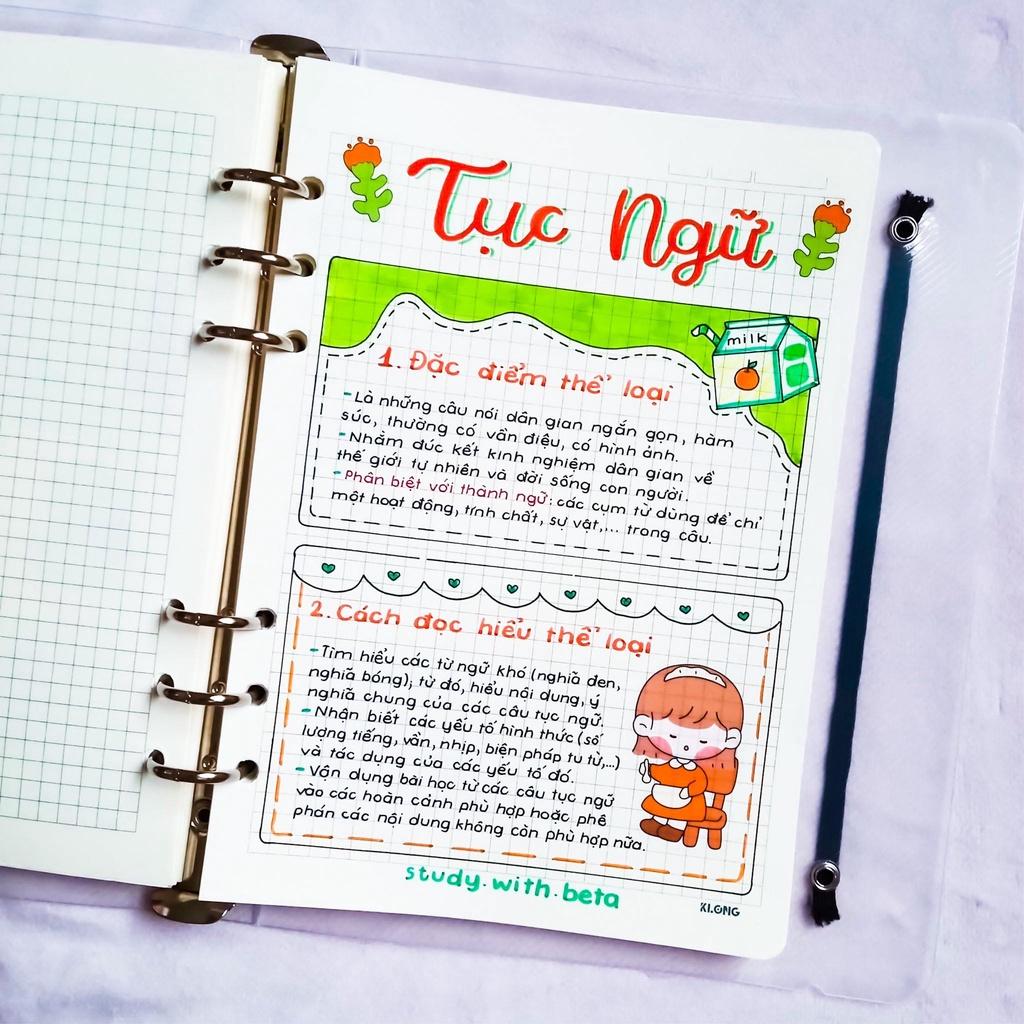 Tục Ngữ
milk
1. Đặc điểm thể loại
- Là những câu nói dân gian ngắn gọn, hàm
súc, thường có vần điệu, có hình ảnh.
- Nhằm đúc kết kinh nghiệm dân gian về
thế giới tự nhiên và đời sống con người.
- Phân biệt với thành ngữ: các cụm từ dùng để chỉ
một hoạt động, tính chất, sự vật,... trong câu.
2. Cách đọc hiểu thể loại
- Tìm hiểu các từ ngữ khó (nghĩa đen,
nghĩa bóng); từ đó, hiểu nội dung, ý
nghĩa chung của các câu tục ngữ.
- Nhận biết các yếu tố hình thức (số
lượng tiếng, vần, nhịp, biện pháp tu từ,...)
và tác dụng của các yếu tố đó.
- Vận dụng bài học từ các câu tục ngữ
vào các hoàn cảnh phù hợp hoặc phê
phán các nội dung không còn phù hợp nữa.
study.with.beta
KI.ONG